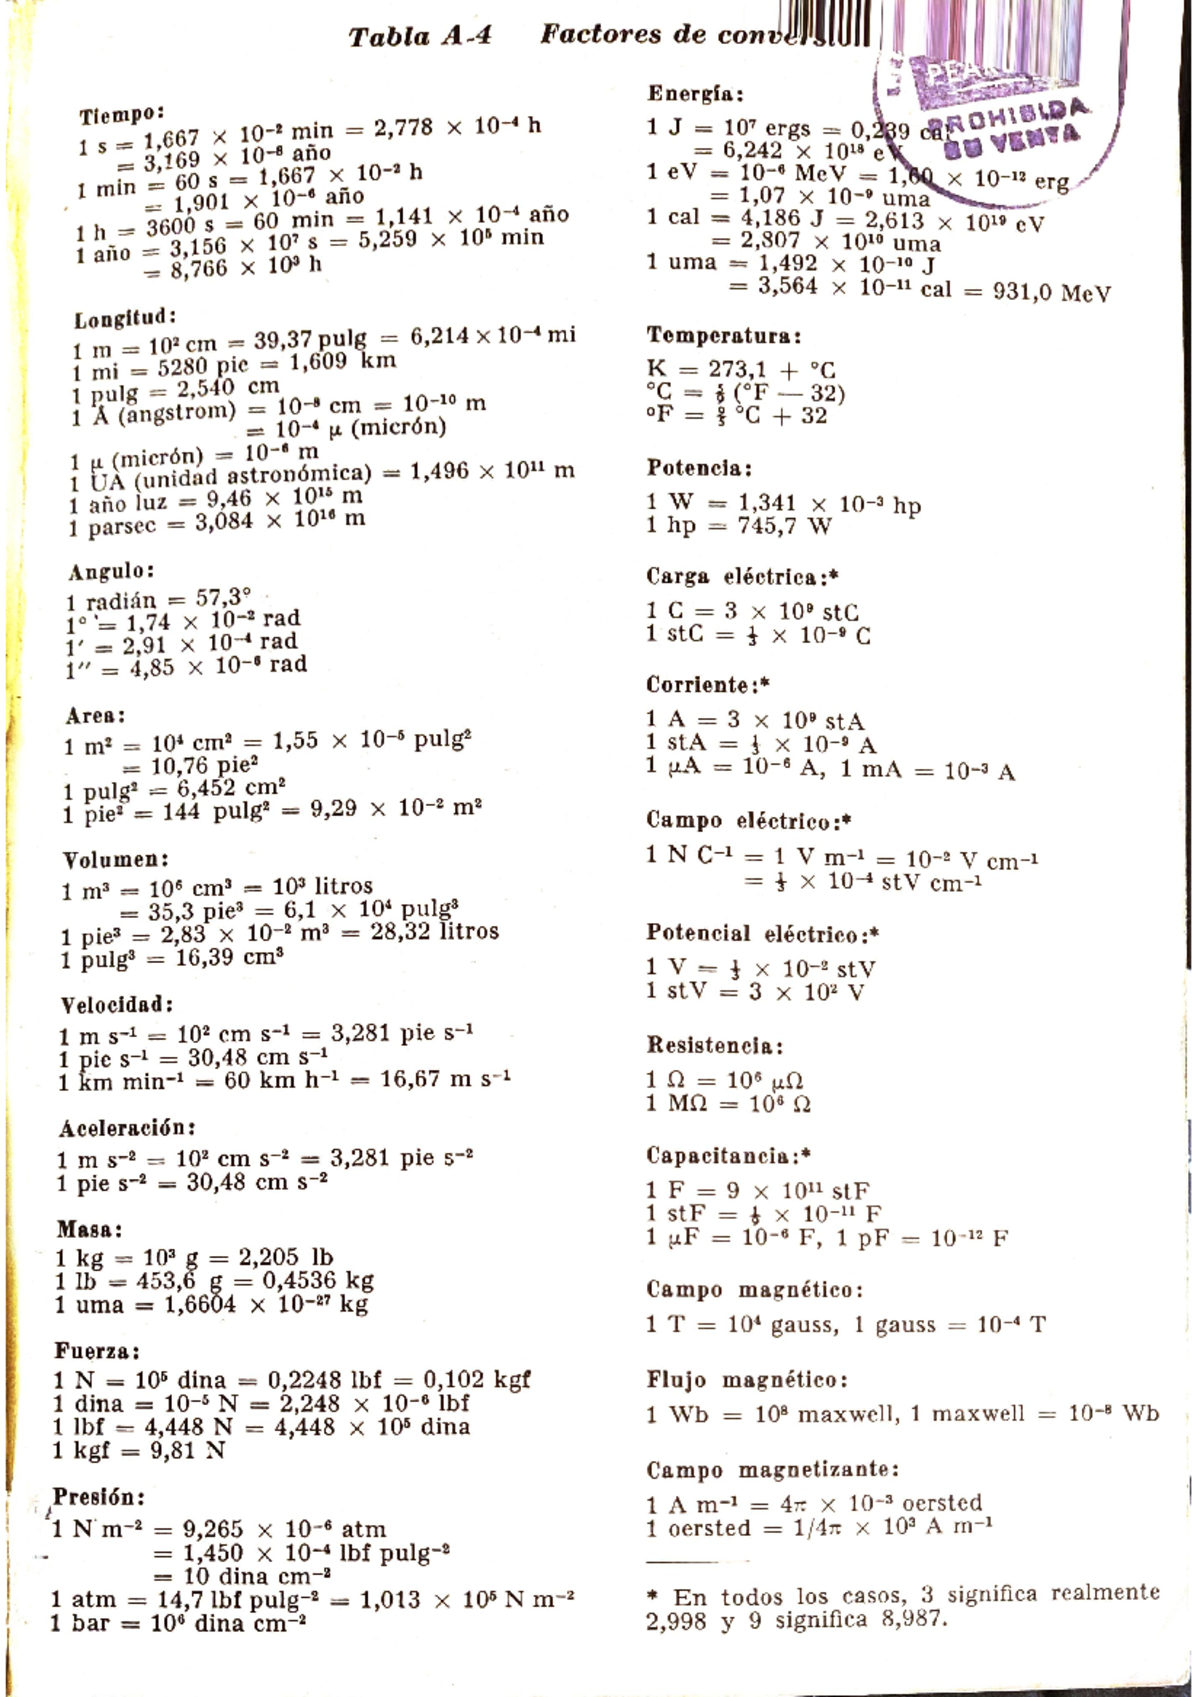 Tabla A-4 Factores de conversión
Tiempo:
1 s = 1,667 × 10⁻² min = 2,778 × 10⁻⁴ h
= 3,169 × 10⁻⁸ año
1 min = 60 s = 1,667 × 10⁻² h
= 1,901 × 10⁻⁶ año
1 h = 3600 s = 60 min = 1,141 × 10⁻⁴ año
1 año = 3,156 × 10⁷ s = 5,259 × 10⁵ min
= 8,766 × 10³ h
Longitud:
1 m = 10² cm = 39,37 pulg = 6,214 × 10⁻⁴ mi
1 mi = 5280 pie = 1,609 km
1 pulg = 2,540 cm
1 Å (angstrom) = 10⁻⁸ cm = 10⁻¹⁰ m
= 10⁻⁴ μ (micrón)
1 μ (micrón) = 10⁻⁶ m
1 UA (unidad astronómica) = 1,496 × 10¹¹ m
1 año luz = 9,46 × 10¹⁵ m
1 parsec = 3,084 × 10¹⁶ m
Angulo:
1 radián = 57,3°
1° = 1,74 × 10⁻² rad
1′ = 2,91 × 10⁻⁴ rad
1″ = 4,85 × 10⁻⁶ rad
Area:
1 m² = 10⁴ cm² = 1,55 × 10⁻⁵ pulg²
= 10,76 pie²
1 pulg² = 6,452 cm²
1 pie² = 144 pulg² = 9,29 × 10⁻² m²
Volumen:
1 m³ = 10⁶ cm³ = 10³ litros
= 35,3 pie³ = 6,1 × 10⁴ pulg³
1 pie³ = 2,83 × 10⁻² m³ = 28,32 litros
1 pulg³ = 16,39 cm³
Velocidad:
1 m s⁻¹ = 10² cm s⁻¹ = 3,281 pie s⁻¹
1 pie s⁻¹ = 30,48 cm s⁻¹
1 km min⁻¹ = 60 km h⁻¹ = 16,67 m s⁻¹
Aceleración:
1 m s⁻² = 10² cm s⁻² = 3,281 pie s⁻²
1 pie s⁻² = 30,48 cm s⁻²
Masa:
1 kg = 10³ g = 2,205 lb
1 lb = 453,6 g = 0,4536 kg
1 uma = 1,6604 × 10⁻²⁷ kg
Fuerza:
1 N = 10⁵ dina = 0,2248 lbf = 0,102 kgf
1 dina = 10⁻⁵ N = 2,248 × 10⁻⁶ lbf
1 lbf = 4,448 N = 4,448 × 10⁵ dina
1 kgf = 9,81 N
Presión:
1 N m⁻² = 9,265 × 10⁻⁶ atm
= 1,450 × 10⁻⁴ lbf pulg⁻²
= 10 dina cm⁻²
1 atm = 14,7 lbf pulg⁻² = 1,013 × 10⁵ N m⁻²
1 bar = 10⁶ dina cm⁻²
Energía:
1 J = 10⁷ ergs = 0,239 cal
= 6,242 × 10¹⁸ eV
1 eV = 10⁻⁶ MeV = 1,60 × 10⁻¹² erg
= 1,07 × 10⁻⁹ uma
1 cal = 4,186 J = 2,613 × 10¹⁹ eV
= 2,807 × 10¹⁰ uma
1 uma = 1,492 × 10⁻¹⁰ J
= 3,564 × 10⁻¹¹ cal = 931,0 MeV
Temperatura:
K = 273,1 + °C
°C = 5/9 (°F — 32)
°F = 9/5 °C + 32
Potencia:
1 W = 1,341 × 10⁻³ hp
1 hp = 745,7 W
Carga eléctrica:*
1 C = 3 × 10⁹ stC
1 stC = 1/3 × 10⁻⁹ C
Corriente:*
1 A = 3 × 10⁹ stA
1 stA = 1/3 × 10⁻⁹ A
1 μA = 10⁻⁶ A, 1 mA = 10⁻³ A
Campo eléctrico:*
1 N C⁻¹ = 1 V m⁻¹ = 10⁻² V cm⁻¹
= 1/3 × 10⁻⁴ stV cm⁻¹
Potencial eléctrico:*
1 V = 1/3 × 10⁻² stV
1 stV = 3 × 10² V
Resistencia:
1 Ω = 10⁶ μΩ
1 MΩ = 10⁶ Ω
Capacitancia:*
1 F = 9 × 10¹¹ stF
1 stF = 1/9 × 10⁻¹¹ F
1 μF = 10⁻⁶ F, 1 pF = 10⁻¹² F
Campo magnético:
1 T = 10⁴ gauss, 1 gauss = 10⁻⁴ T
Flujo magnético:
1 Wb = 10⁸ maxwell, 1 maxwell = 10⁻⁸ Wb
Campo magnetizante:
1 A m⁻¹ = 4π × 10⁻³ oersted
1 oersted = 1/4π × 10³ A m⁻¹
* En todos los casos, 3 significa realmente
2,998 y 9 significa 8,987.
PROHIBIDA
SU VENTA